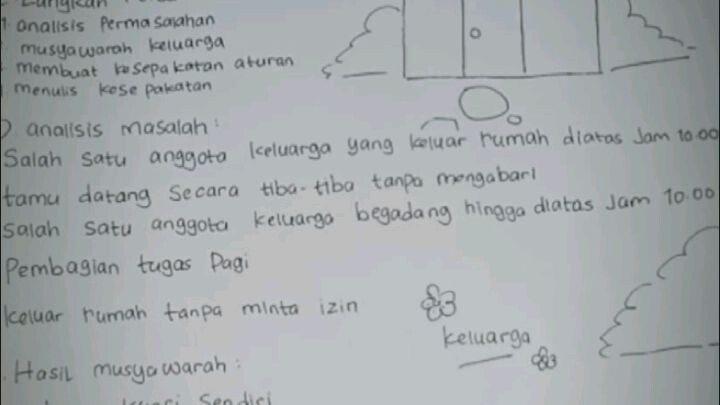 Langkah
1. analisis Permasalahan
musyawarah keluarga
membuat kesepakatan aturan
menulis kesepakatan
analisis masalah :
Salah satu anggota keluarga yang keluar rumah diatas Jam 10.00
tamu datang Secara tiba-tiba tanpa mengabari
Salah satu anggota keluarga begadang hingga diatas Jam 10.00
Pembagian tugas Pagi
keluar rumah tanpa minta izin
keluarga
Hasil musyawarah :
Sendiri